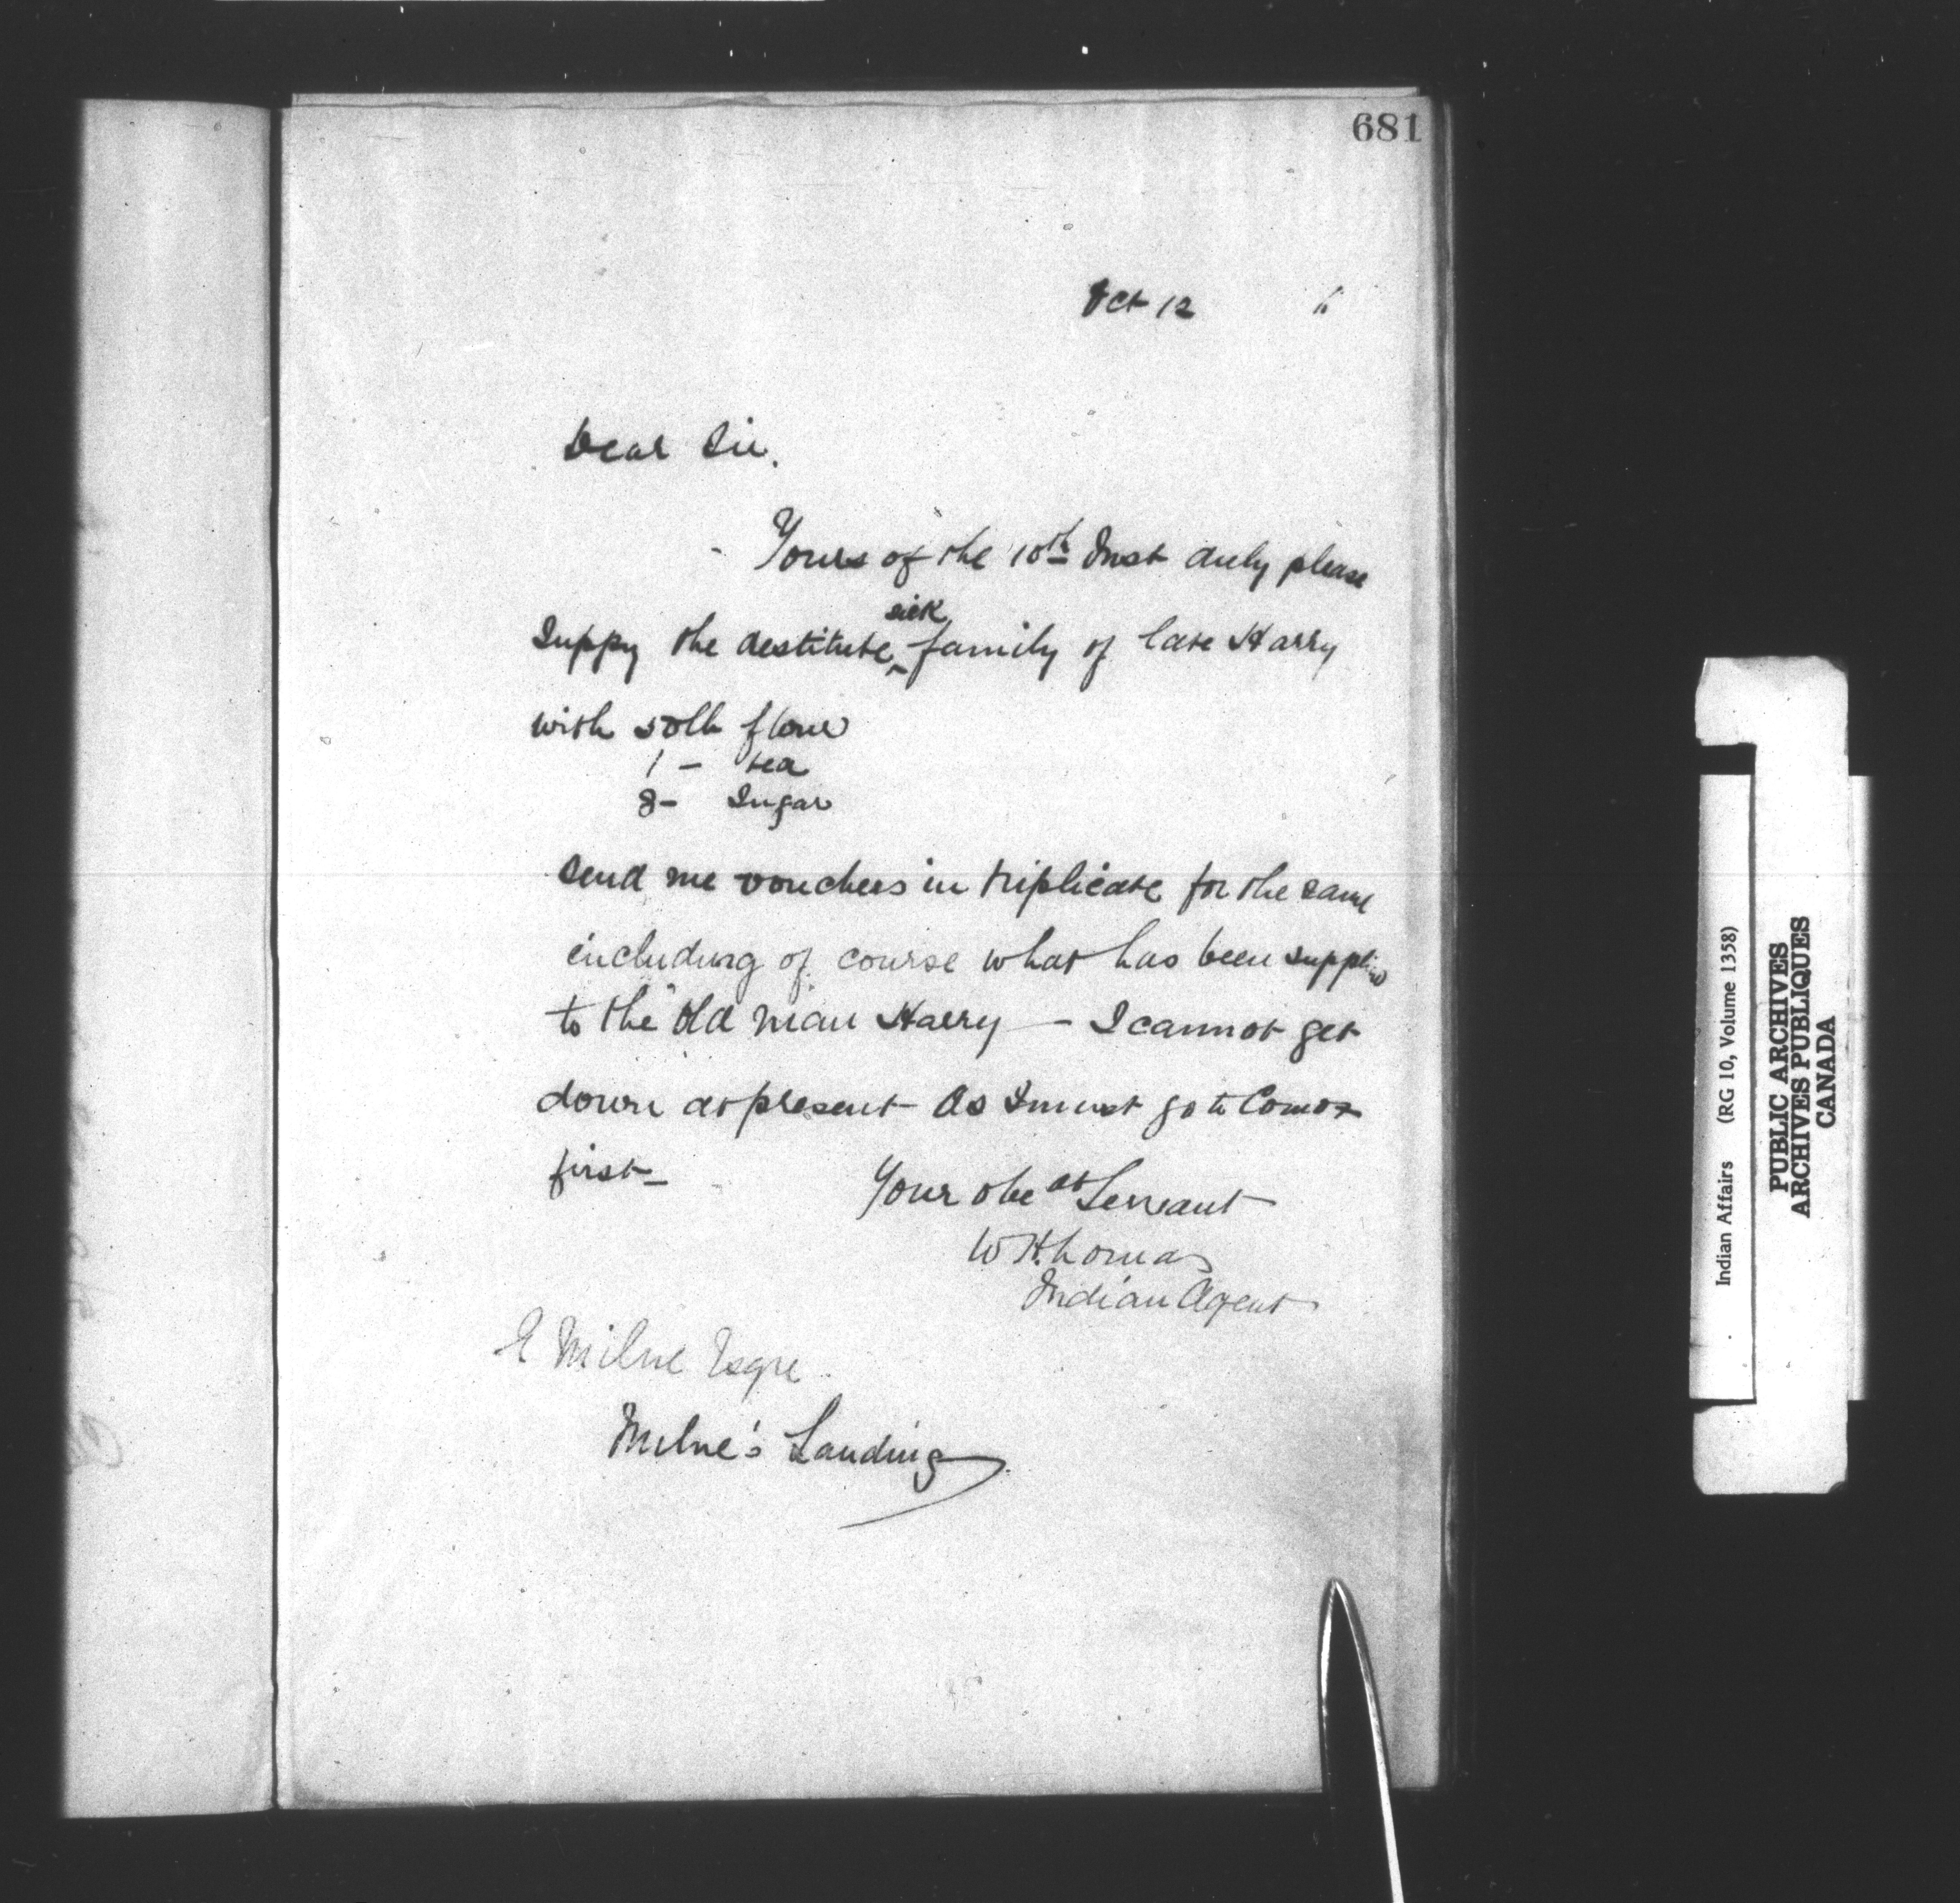 681
Oct 12
Dear Sir.
Yours of the 10th Inst duly please
Suppy the destitute sick family of late Harry
with 50lb flour
1 - tea
8 - Sugar
Send me vouchers in triplicate for the same
including of course what has been supplied
to the Old man Harry — I cannot get
down at present as I must go to Comox
first —
Your obe dt Servant
W H Lomas
Indian Agent
E Milne Esqre
Milne's Landing
Indian Affairs (RG 10, Volume 1358)
PUBLIC ARCHIVES
ARCHIVES PUBLIQUES
CANADA